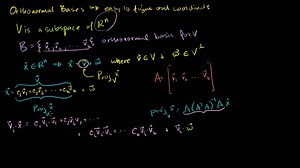 Orthonormal Bases ⇒ easy to figure out coordinates
V is a subspace of ℝⁿ
B = {v⃗₁, v⃗₂, ... v⃗ₖ} orthonormal basis for V
x⃗ ∈ ℝⁿ ⇒ x⃗ = v⃗ + w⃗ where v⃗ ∈ V w⃗ ∈ V^⊥
Proj_V x⃗
A = [v⃗₁ v⃗₂ ... v⃗ₖ]
x⃗ = c₁v⃗₁ + c₂v⃗₂ + ... cₖv⃗ₖ + w⃗
Proj_V x⃗
proj_V x⃗ = A(AᵀA)⁻¹Aᵀx⃗
+ cᵢv⃗ᵢ·v⃗ᵢ ... cₖv⃗ᵢ·v⃗ₖ + v⃗ᵢ·w⃗